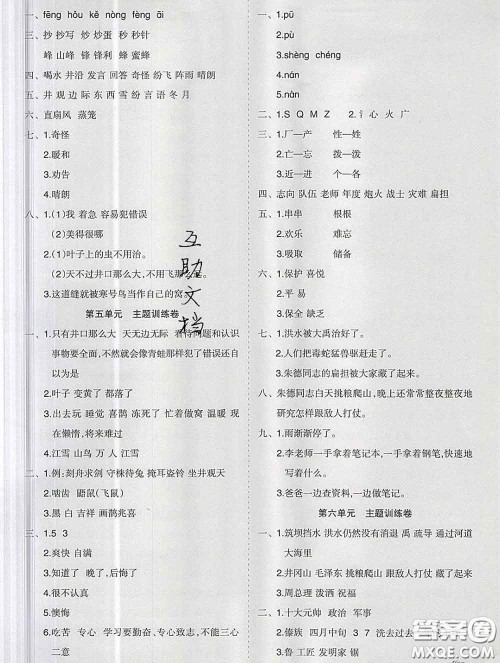 一、fēng hóu kě nòng fèng āi
三、抄 抄写 炒 炒蛋 秒 秒针
峰 山峰 锋 锋利 蜂 蜜蜂
四、喝水 井沿 发言 回答 奇怪 纷飞 阵雨 晴朗
五、井 观 边 际 东 西 雪 纷 言 语 冬 月
六、直扇风 蒸笼
七、1.奇怪
2.暖和
3.劝告
4.晴朗
八、1.(1)我 着急 容易犯错误
(2)美得很哪
2.(1)叶子上的虫不用治。
(2)天不过井口那么大,不用飞那么远。
3.这道缝就被寒号鸟当作自己的窝。
第五单元 主题训练卷
一、1.只有井口那么大 天无边无际 看待问题和认识
事物要全面,不然就会像青蛙那样犯了错误还自
以为是
2.叶子 变黄了 都落了
3.出去玩 睡觉 喜鹊 冻死了 忙着做窝 温暖 现
在懒惰,将来受苦
4.江雪 山鸟 万 人 江雪
二、1.例:刻舟求剑 守株待兔 掩耳盗铃 坐井观天
2.啮齿 鼯鼠(飞鼠)
3.黑白 吉祥 画鹊兆喜
三、1.5 3
2.爽快 自满
3.知道了 晚了,后悔了
4.很不认真
5.懊悔
6.吃苦 专心 学习要勤奋、专心致志,不能三心
二意
一、1.pū
2.pù
3.shèng chéng
4.nán
5.nàn
二、1.S Q M Z 2.氵 心 火 广
三、1.厂—产 性—姓
2.亡—忘 拨—泼
3.近—进 个—各
四、志向 队伍 老师 年度 炮火 战士 灾难 扁担
五、1.串串 根根
2.欢乐 难忘
3.吸取 储备
六、1.保护 喜悦
2.平 易
3.保全 缺乏
七、1.洪水被大禹治好了。
2.人们把毒蛇猛兽驱赶走了。
3.朱德同志的扁担被大家藏了起来。
八、朱德同志白天挑粮爬山,晚上还常常整夜整夜地
研究怎样跟敌人打仗。
九、1.雨渐渐停了。
2.李老师一手拿着笔记本,一手拿着钢笔,快速地
写着什么。
3.爸爸一边查资料,一边做记录。
第六单元 主题训练卷
一、1.筑坝挡水 洪水仍然没有消退 禹 疏导 通过河道
大海里
2.井冈山 毛泽东 挑粮爬山 怎样跟敌人打仗
3.周总理 泼洒 祝福
二、1.十大元帅 政治 军事
2.傣族 四月中旬 3 7 洗去过去
3.鲁 工匠 发明家 锯
互助文档
答案圈
MXQE.COM